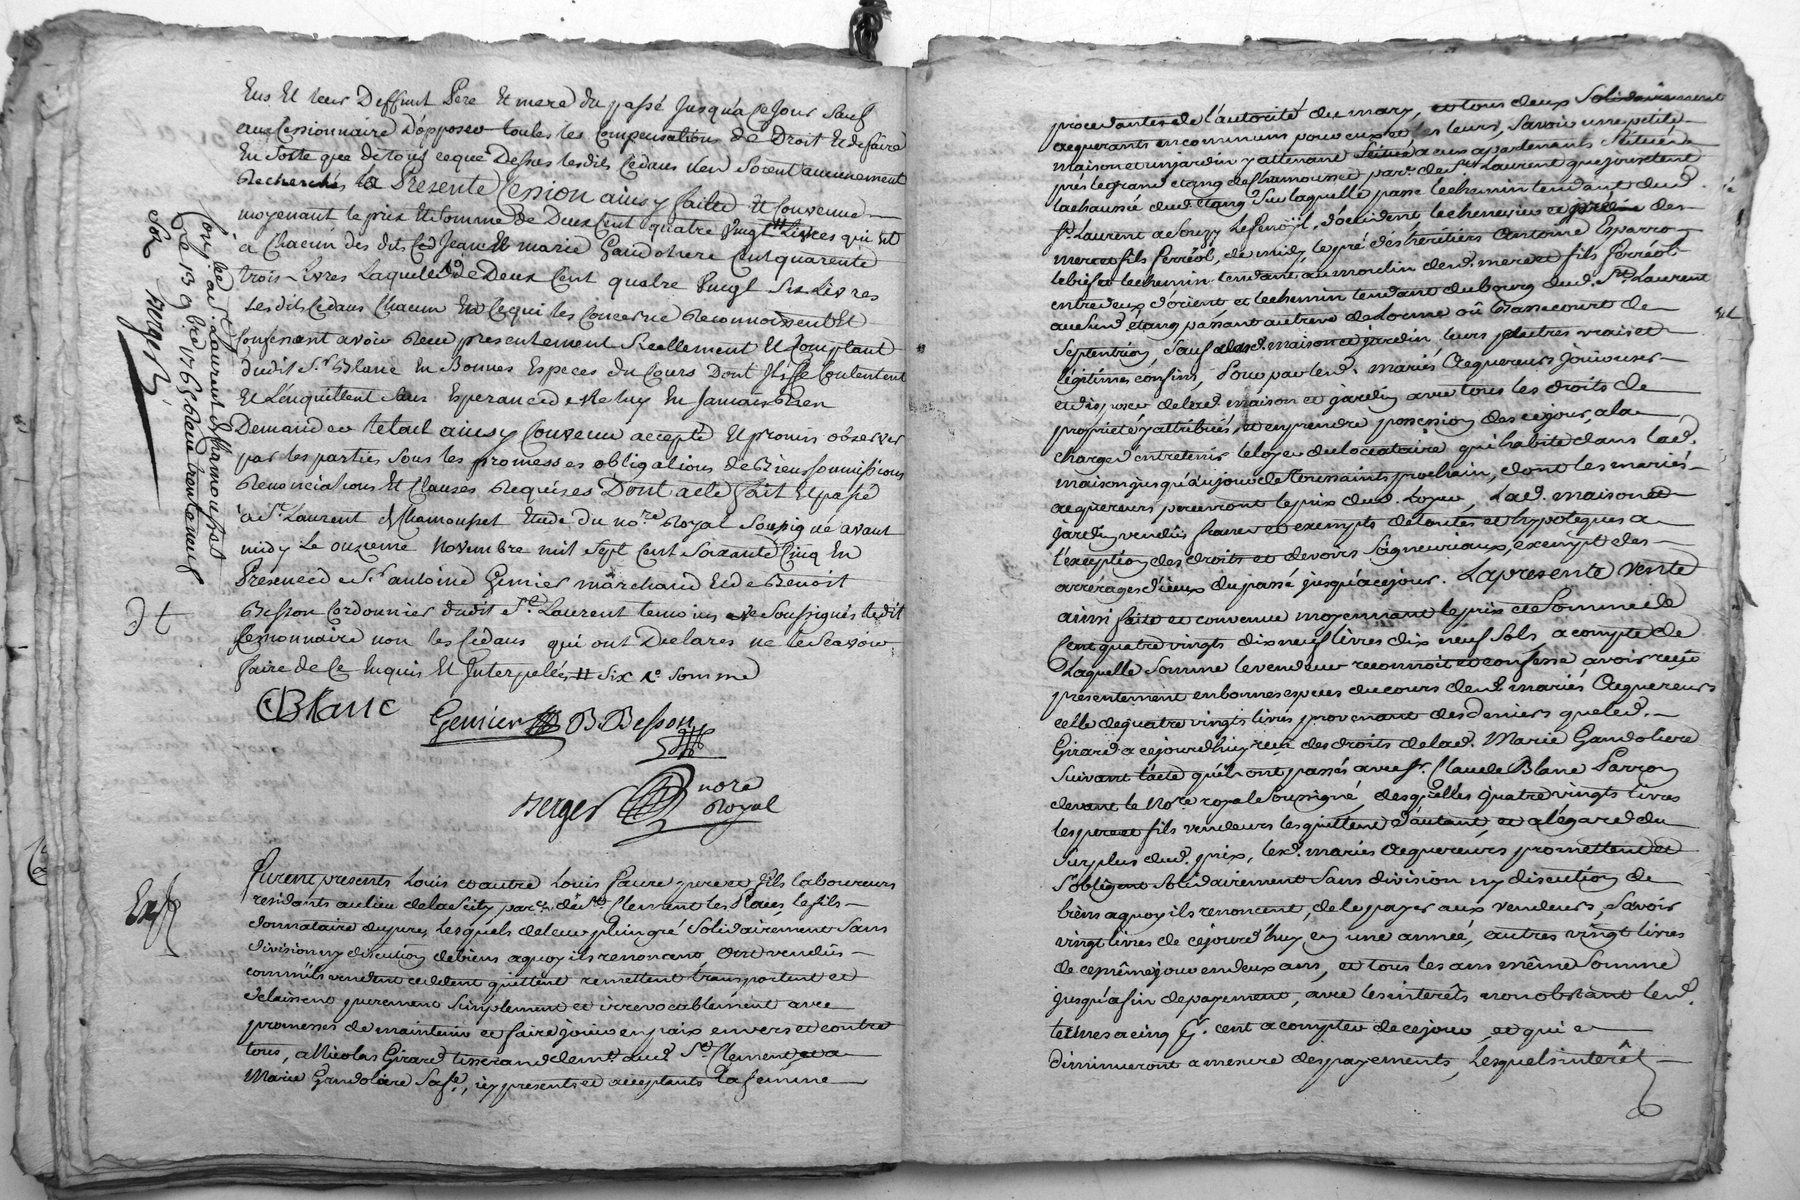 Eus Et leur Deffunt Pere Et mere du passé Jusqu'a ce Jour Sauf
au Cessionnaire D'opposer toutes les Compensations de Droit Et de faire
En Sorte que de tout ce que Dessus lesdits Cedans n'en Soient aucunement
Recherchés la Presente Cession ainsy faitte Et Convenue
moyenant le prix Et Somme de Deux Cent quatre Vingt # Livres qui Est
a Chacun des dits Jean Et Marie Gandoliere Cent quarente
trois Livres Laquelle de Deux Cent quatre Vingt Six Livres
Lesdits Cedans Chacun En Ce qui les Concerne Reconnoissent Et
Confessent avoir Reçu presentement Reellement Et Comptant
dudit Sr Blanc En Bonnes Especes du Cours Dont Ils Se Contentent
Et L'enquittent Sans Esperance de Re luy En Jamais Rien
Demander le tout ainsy Convenu accepté Et promis observer
par les parties Sous les promesses obligations de Biens Soumissions
Renonciations Et Clauses Requises Dont acte fait Et passé
à St Laurent de Chamousset Etude du nore Royal Soussigné avant
midy Le onzieme Novembre mil Sept Cent Soixante Cinq En
Presence de Sr antoine Genier marchand Et de Benoit
Besson Cordonnier dudit St Laurent temoins Soussignés ledit
Cessionnaire non les Cedans qui ont Declarés ne le Scavoir
faire de Ce Enquis Et Interpellés # Six Somme
CBlanc Genier B. Besson
Berger nore Royal
Conlé a St Laurent de Chamousset
Le 13 9bre 1765 Reçu trente neuf
Sols Berger
Exp
Furent presents Louis et autre Louis Faure pere et fils laboureurs
residants au lieu de la Seity parce de St Clement les Places, le fils
donnataire du pere, Lesquels de leur plein gré Solidairement Sans
division ny discution de biens a quoy ils renoncent Ont vendus
comm'ils vendent cedent quittent remettent transportent et
delaissent purement Simplement et irrevocablement avec
promesses de maintenir et faire jouir en paix envers et contre
tous, a Nicolas Girard tisserand demt aud. St Clement et a
Marie Gandoliere Sa fe, icy presents et acceptants la femme
procedante de l'autorité du mary, et tous deux Solidairement
acquerants en communs pour eux et les leurs, Savoir une petite
maison et un jardin y attenant Scitué a eux apartenants Scituées
près le grand etang de Chamousset parce de St Laurent que joustent
la chaussée dud. etang Sur laquelle passe le chemin tendant dud.
St Laurent a Souzy Le Senoit, d'occident le chenevier et jardin des
mere et fils Ferréol, de midy, les pré des heritiers Antoine Sparron
le bief et le chemin tendant au moulin desd. mere et fils Ferréol
entredeux d'orient et le chemin tendant du bourg dud. St Laurent
au Susd. étang passant au treve de Lorme où Grassecourt de
Septentrion, Sauf de lad. maison et jardin leurs plautres vrais et
légitimes confins, Pour par lesd. mariés Acquereurs jouir user
et disposer de lad. maison et jardin avec tous les droits de
proprieté y attribués, et en prendre possession dès ce jour, a la
charge d'entretenir le loyer du locataire qui habite dans lad.
maison jusqu'au jour de Toussaints prochain, dont les mariés
acquereurs percevront le prix dud. Loyer, Lad. maison et
jardin vendus francs et exempts de toutes et hypoteques a
l'exception des droits et devoirs Seigneuriaux, exempt des
arrérages d'iceux du passé jusqu'a ce jour. La presente Vente
ainsi faite et convenue moyennant le prix et Somme de
Cent quatre vingts dix neuf livres dix neuf Sols a compte de
Laquelle Somme le vendeur reconnoit et confesse avoir reçu
présentement en bonnes especes du cours desd. mariés Acquereurs
celle de quatre vingts livres provenant des deniers que led.
Girard a cejourd'huy reçu des droits de lad. Marie Gandoliere
Suivant l'acte qu'ils ont passés avec Sr. Claude Blanc Parron
devant le Nore royal Soussigné, desquelles quatre vingts livres
les pere et fils vendeurs les quittent d'autant, et a l'égard du
Surplus dud. prix, lesd. mariés acquereurs promettent et
S'obligent Solidairement Sans division ny discution de
biens a quoy ils renoncent, de le payer aux vendeurs, Savoir
vingt livres de cejourd'huy en une année, autres vingt livres
de ce même jour en deux ans, et tous les ans même Somme
jusqu'a fin de payement, avec les interêts nonobstant lesd.
termes a cinq pr. cent a compter de ce jour, et qui
diminueront a mesure des payements, Lesquels interêt